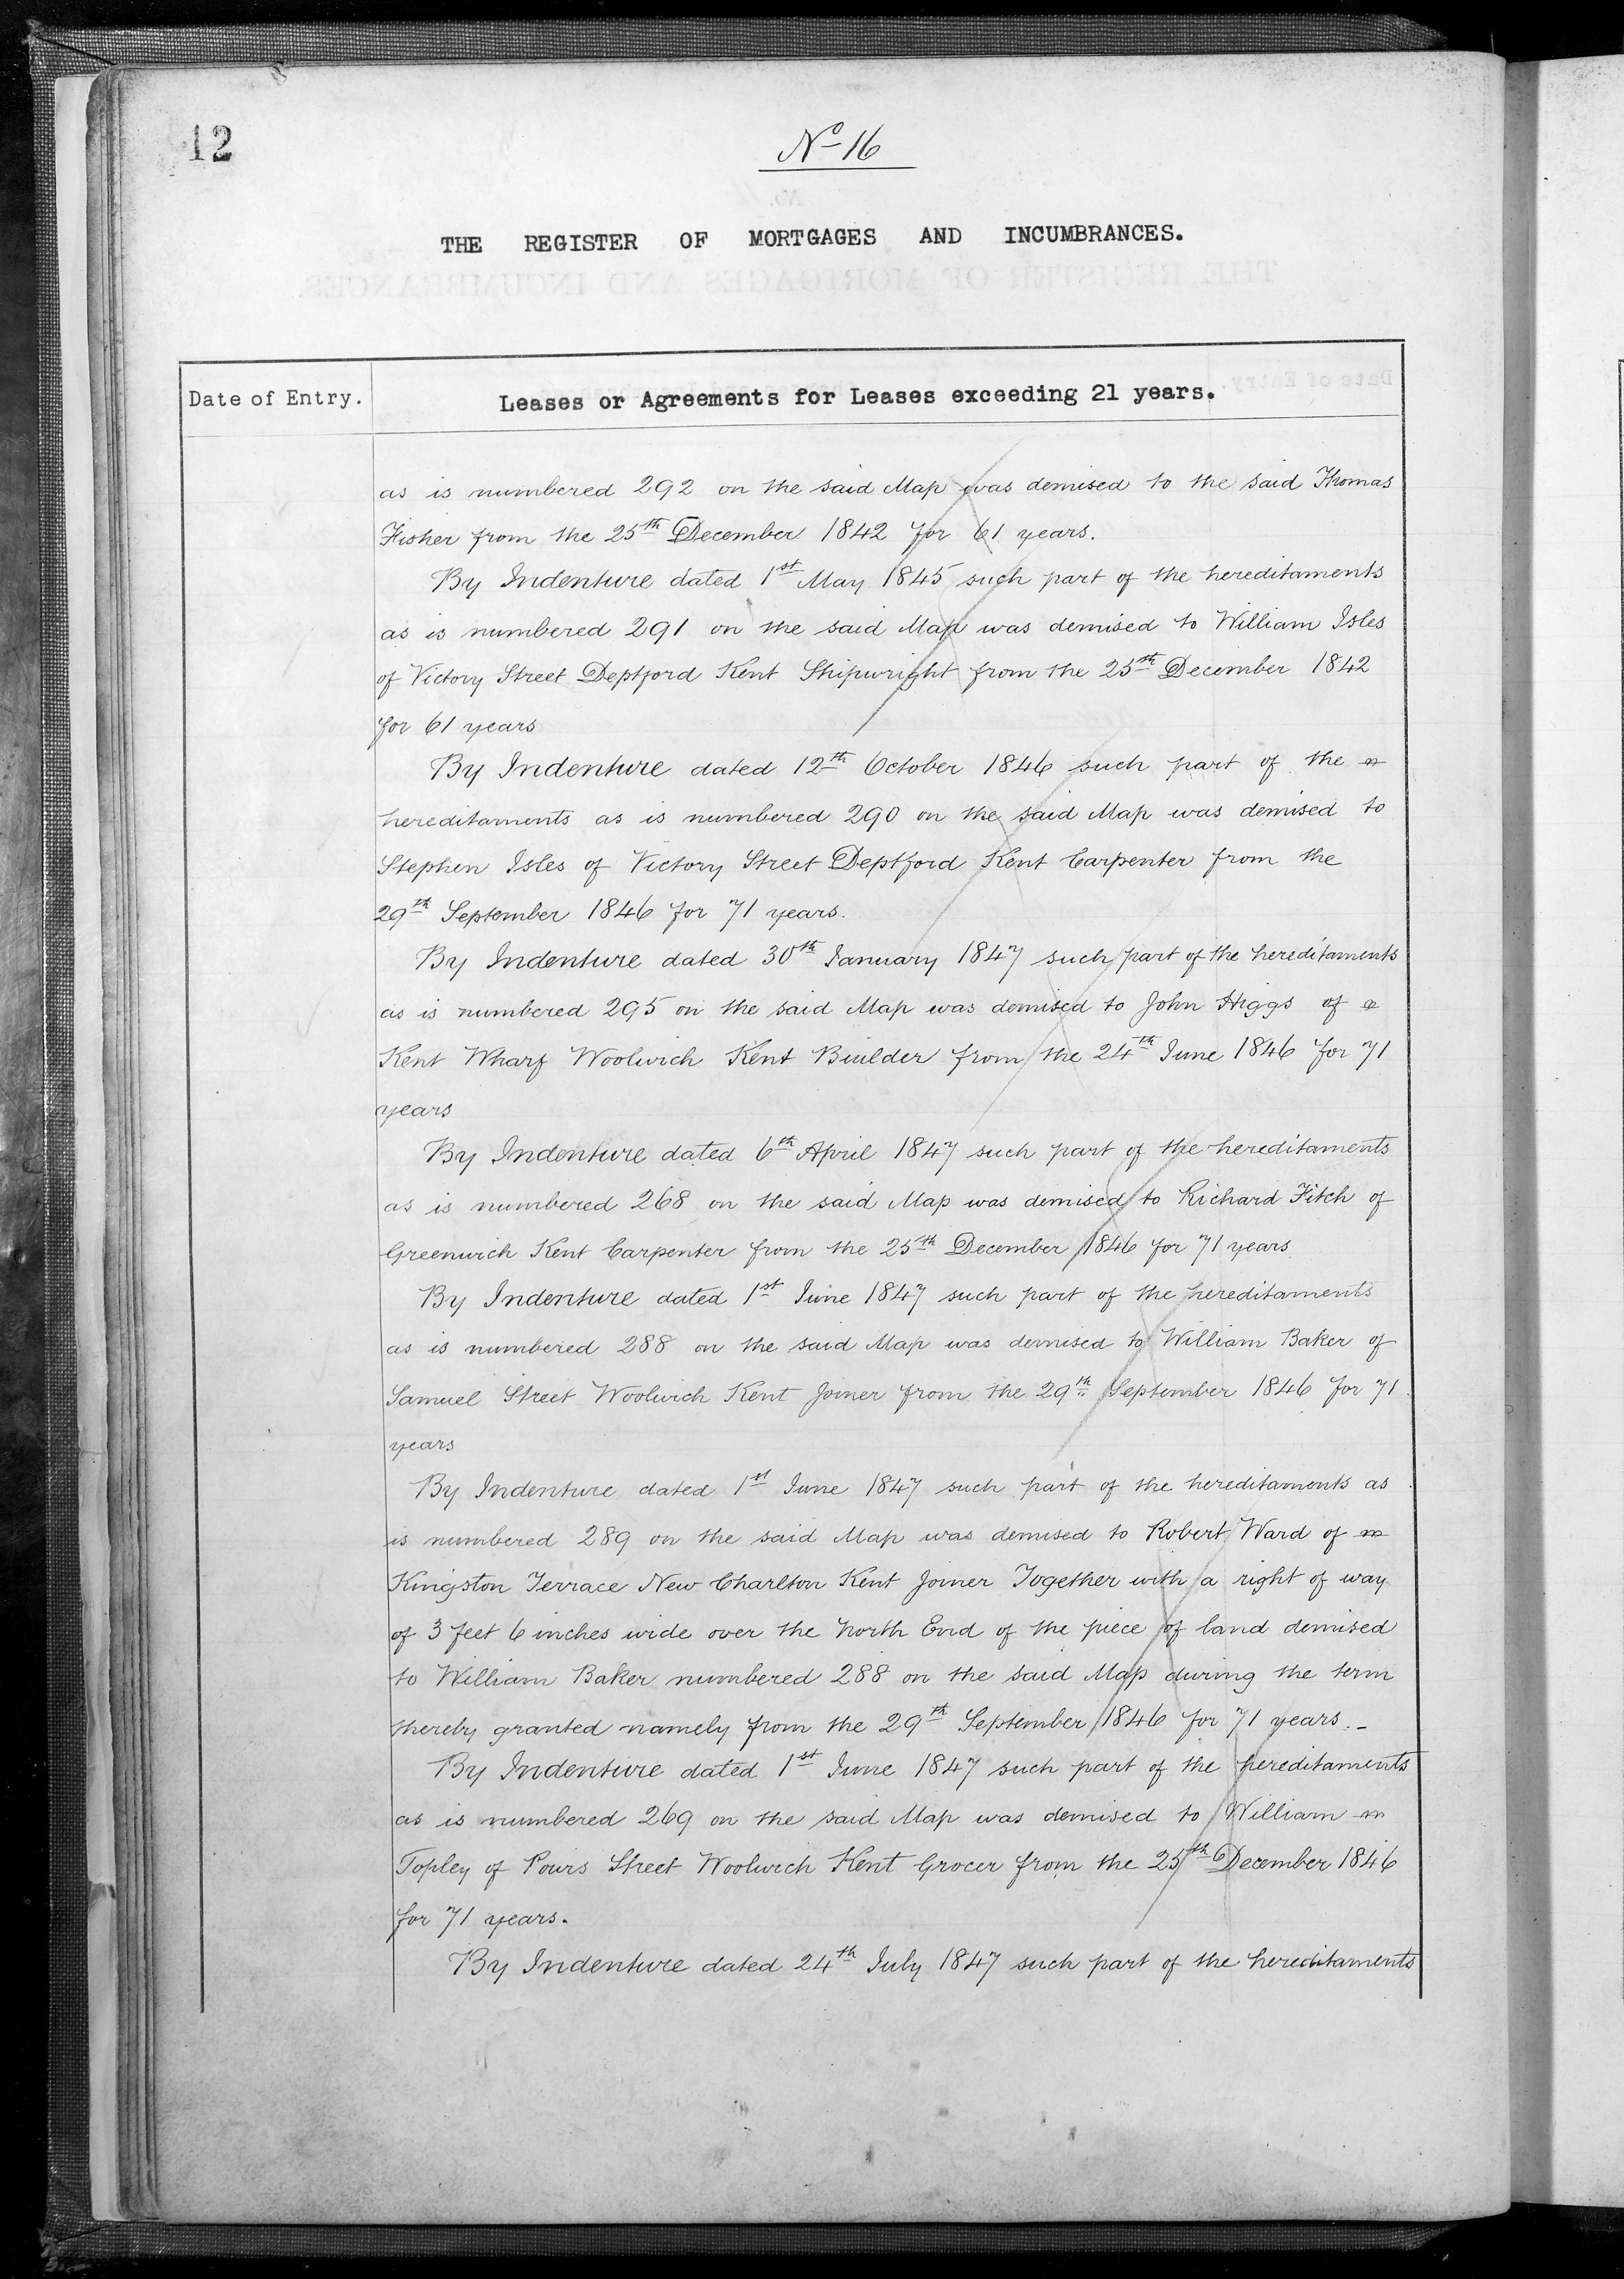 12
No 16
THE REGISTER OF MORTGAGES AND INCUMBRANCES.
Date of Entry.
Leases or Agreements for Leases exceeding 21 years.
as is numbered 292 on the said Map was demised to the said Thomas
Fisher from the 25th December 1842 for 61 years.
By Indenture dated 1st May 1845 such part of the hereditaments
as is numbered 291 on the said Map was demised to William Isles
of Victory Street Deptford Kent Shipwright from the 25th December 1842
for 61 years
By Indenture dated 12th October 1846 such part of the
hereditaments as is numbered 290 on the said Map was demised to
Stephen Isles of Victory Street Deptford Kent Carpenter from the
29th September 1846 for 71 years.
By Indenture dated 30th January 1847 such part of the hereditaments
as is numbered 295 on the said Map was demised to John Higgs of
Kent Wharf Woolwich Kent Builder from the 24th June 1846 for 71
years
By Indenture dated 6th April 1847 such part of the hereditaments
as is numbered 268 on the said Map was demised to Richard Fitch of
Greenwich Kent Carpenter from the 25th December 1846 for 71 years
By Indenture dated 1st June 1847 such part of the hereditaments
as is numbered 288 on the said Map was demised to William Baker of
Samuel Street Woolwich Kent Joiner from the 29th September 1846 for 71
years
By Indenture dated 1st June 1847 such part of the hereditaments as
is numbered 289 on the said Map was demised to Robert Ward of
Kingston Terrace New Charlton Kent Joiner Together with a right of way
of 3 feet 6 inches wide over the North End of the piece of land demised
to William Baker numbered 288 on the said Map during the term
thereby granted namely from the 29th September 1846 for 71 years. -
By Indenture dated 1st June 1847 such part of the hereditaments
as is numbered 269 on the said Map was demised to William
Topley of Powis Street Woolwich Kent Grocer from the 25th December 1846
for 71 years.
By Indenture dated 24th July 1847 such part of the hereditaments